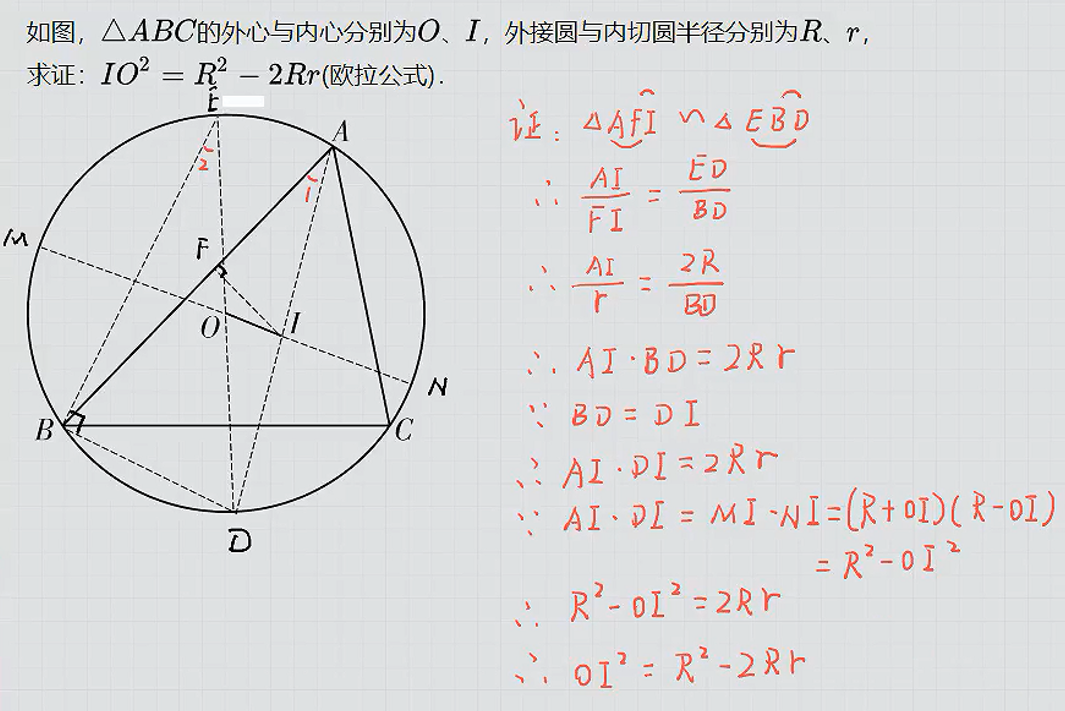 如图，△ABC的外心与内心分别为O、I，外接圆与内切圆半径分别为R、r，
求证：IO² = R² − 2Rr(欧拉公式).
E
A
2
1
M
F
O
I
N
B
C
D
证：△AFI ∽ △EBD
∴ AI/FI = ED/BD
∴ AI/r = 2R/BD
∴ AI·BD=2Rr
∵ BD = DI
∴ AI·DI=2Rr
∵ AI·DI = MI·NI=(R+OI)(R-OI)
= R²-OI²
∴ R²-OI²=2Rr
∴ OI² = R²-2Rr